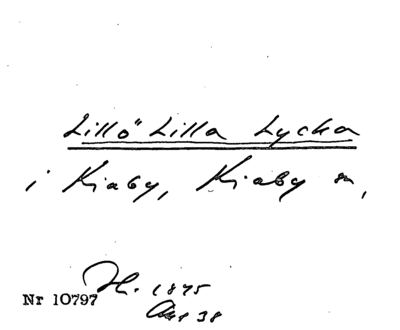 Lillö Lilla Lycka
i Kiaby, Kiaby sn,
H. 1875
Nr 10797
38